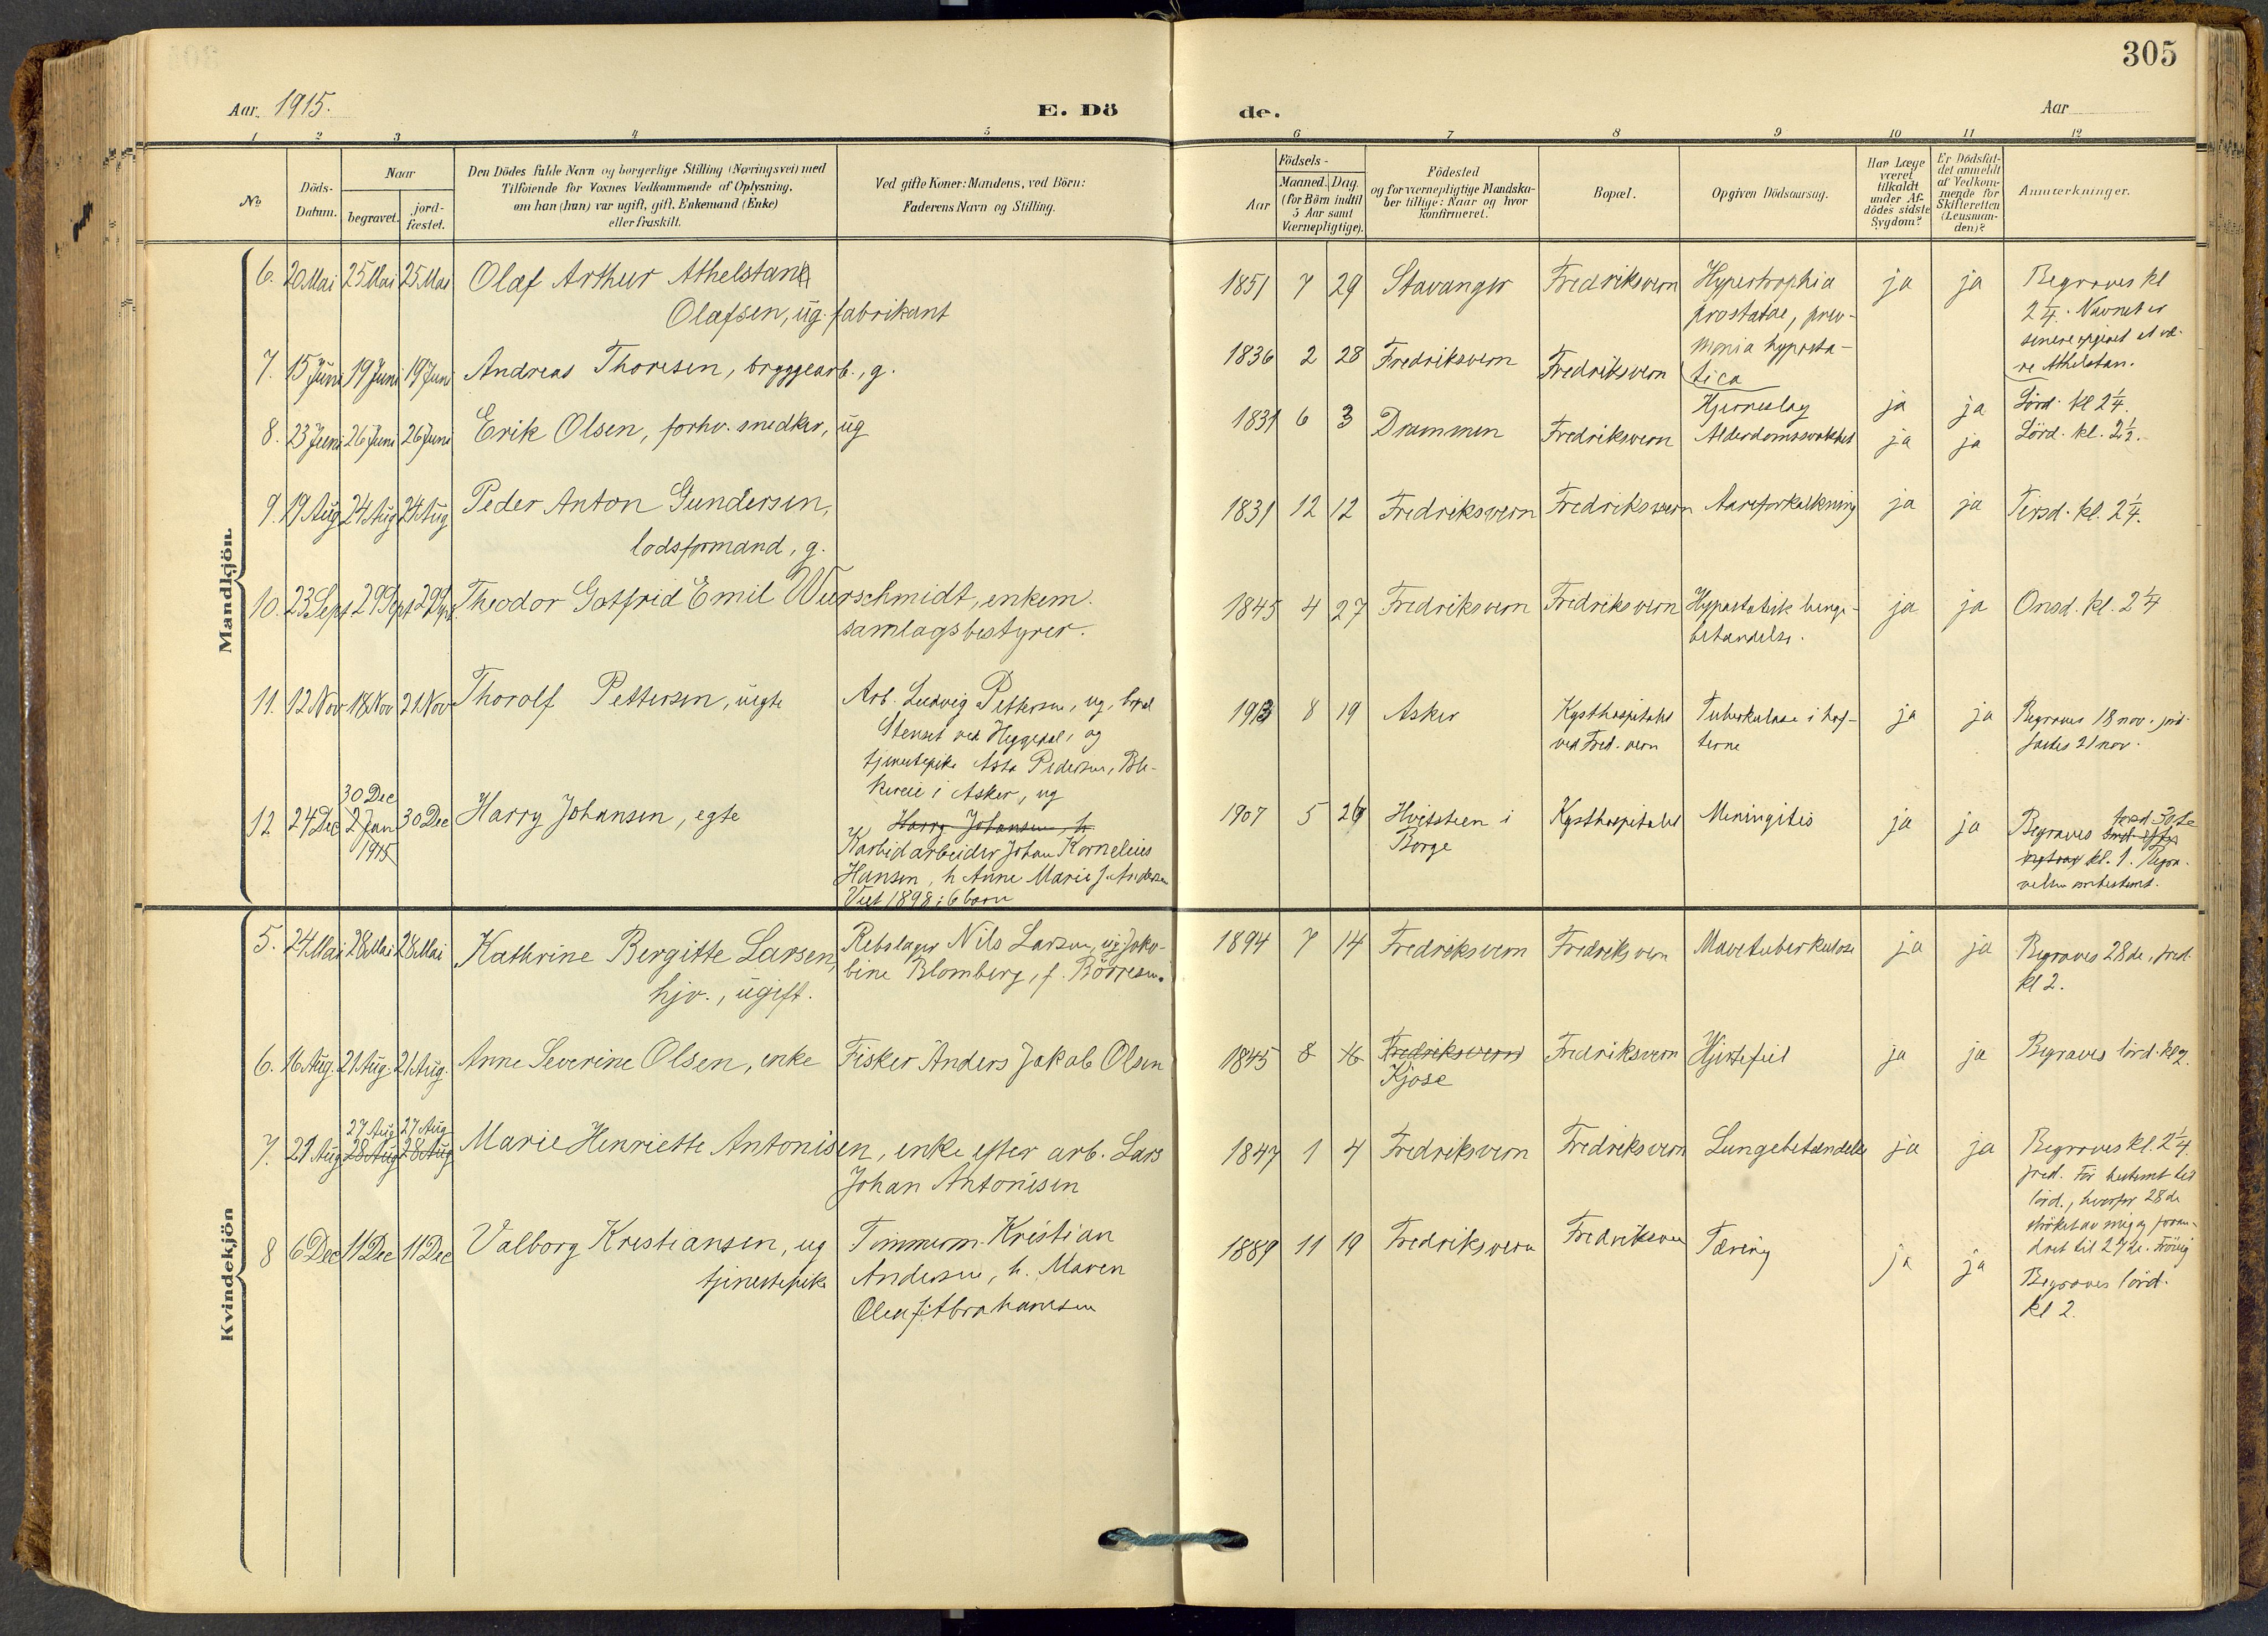 305
Aar. 1915.
E. Dö
de.
Aar
1 2 3 4 5 6 7 8 9 10 11 12
No
Döds-
Datum.
Naar
begravet.
jord-
fæstet.
Den Dödes fulde Navn og borgerlige Stilling (Næringsvei) med
Tilföiende for Voxnes Vedkommende af Oplysning,
om han (hun) var ugift, gift, Enkemand (Enke)
eller fraskilt.
Ved gifte Koner: Mandens, ved Börn:
Faderens Navn og Stilling.
Födsels-
Aar
Maaned. Dag.
(for Børn indtil
5 Aar samt
Værnepligtige).
Födested
og for værnepligtige Mandska-
ber tillige: Naar og hvor
konfirmeret.
Bopæl.
Opgiven Dödsaarsag.
Har Læge
været
tilkaldt
under Af-
dödes sidste
Sygdom?
Er Dödsfal-
det anmeldt
af Vedkom-
mende for
Skifteretten
(Lensman-
den)?
Anmerkninger.
Mandkjön.
6. 20 Mai 25 Mai 25 Mai Olaf Arthur Athelstane
Olafsen, ug. fabrikant
1851 7 29 Stavanger Fredriksvern Hypertrophia
prostatae, pneu-
monia hyposta-
tica
ja ja Begraves kl
2 1/4. Navnet er
senere opgivet at væ-
re Athelstan.
7. 15 Juni 19 Juni 19 Juni Andreas Thoresen, bryggearb., g.
1836 2 28 Fredriksvern Fredriksvern Hjerneslag ja ja Lörd. kl 2 1/4.
8. 23 Juni 26 Juni 26 Juni Erik Olsen, forhv. snedker, ug
1831 6 3 Drammen Fredriksvern Alderdomssvakhet ja ja Lörd. kl. 2 1/2.
9. 19 Aug 24 Aug 24 Aug Peder Anton Gundersen,
lodsformand, g.
1831 12 12 Fredriksvern Fredriksvern Aareforkalkning ja ja Tirsd. kl. 2 1/4.
10. 23 Sept 29 Sept 29 Sept. Theodor Gotfrid Emil Wurschmidt, enkem.
samlagsbestyrer.
1845 4 27 Fredriksvern Fredriksvern Hypostatisk lunge-
betændelse.
ja ja Onsd. kl. 2 1/4
11. 12 Nov 18 Nov 21 Nov Thorolf Pettersen, uegte
Arb. Ludvig Pettersen, ug,
Stenset ved Heggedal, og
tjenestepike Asta Pedersen, Ble-
kereie i Asker, ug
1913 8 19 Asker Kysthospitalet
ved Fred. vern
Tuberkulose i hof-
terne
ja ja Begraves 18 nov. jord-
festes 21 nov.
30 Dec
12 24 Dec 2 Jan 30 Dec Harry Johansen, egte
1915
Harry Johansen, h.
Karbidarbeider Johan Kornelius
Hansen, h Anne Marie f. Andersen
Viet 1898; 6 barn
1907 5 26 Hvitsteen i
Borge
Kysthospitalet Meningitis ja ja
Begraves
kl. 1. Begra-
velsen ombestemt.
Kvindekjön
5. 24 Mai 28 Mai 28 Mai Kathrine Bergitte Larsen,
hjv., ugift.
Rebslager Nils Larsen, og Jako-
bine Blomberg, f. Börresen.
1894 7 14 Fredriksvern Fredriksvern Mavetuberkulose ja ja Begraves 28de, fred.
kl 2.
6. 16 Aug. 21 Aug. 21 Aug. Anne Severine Olsen, enke Fisker Anders Jakob Olsen
1845 8 16 Fredriksvern
Kjose
Fredriksvern Hjertefeil ja ja Begraves lörd. kl 2.
27 Aug 27 Aug
7. 21 Aug 28 Aug 28 Aug Marie Henriette Antonisen, enke efter arb. Lars
Johan Antonisen
1847 1 4 Fredriksvern Fredriksvern Lungebetændelse ja ja Begraves kl. 2 1/4.
fred. Før bestemt til
lörd., hvorfor 28de
ströket av mig og foran-
dret til 27de.
8 6 Dec 11 Dec 11 Dec Valborg Kristiansen, ug
tjenestepike
Tömmerm. Kristian
Andersen, h. Maren
Olea f. Abrahamsen
1889 11 19 Fredriksvern Fredriksvern Tæring ja ja
Begraves lörd.
kl 2.